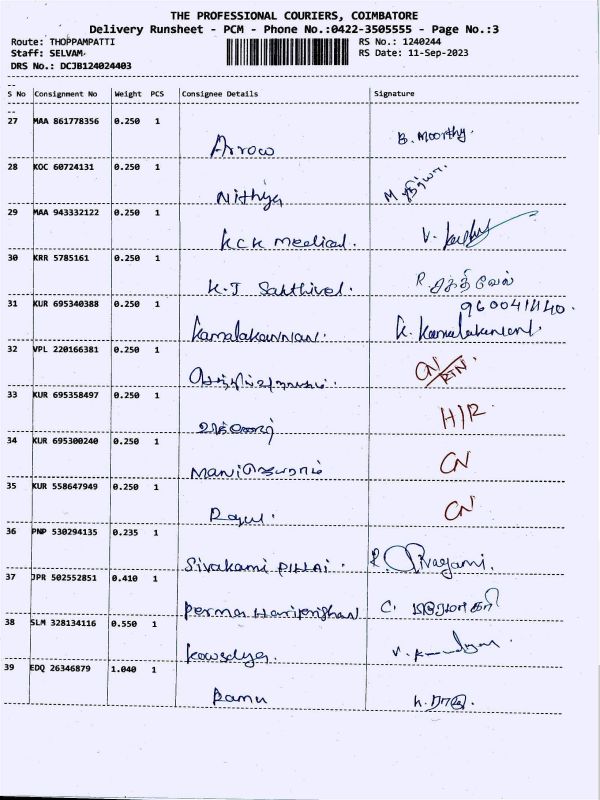 THE PROFESSIONAL COURIERS, COIMBATORE
Delivery Runsheet - PCM - Phone No.:0422-3505555 - Page No.:3
Route: THOPPAMPATTI RS No.: 1240244
Staff: SELVAM RS Date: 11-Sep-2023
DRS No.: DCJB124024403
S No Consignment No Weight PCS Consignee Details Signature
27 MAA 861778356 0.250 1
Arrow B. Moorthy.
28 KOC 60724131 0.250 1
Nithya M நித்யா
29 MAA 943332122 0.250 1
KCK medical. V.
30 KRR 5785161 0.250 1
K.J Sakthivel. R. சக்திவேல்
31 KUR 695340388 0.250 1 960041140.
Kamalakannan. K. Kamalakannan.
32 VPL 220166381 0.250 1
CN/RTN
33 KUR 695358497 0.250 1
H/R
34 KUR 695300240 0.250 1
CN
35 KUR 558647949 0.250 1
CN
36 PNP 530294135 0.235 1
Sivakami PILLAI. R. Sivagami.
37 JPR 502552851 0.410 1
C.
38 SLM 328134116 0.550 1
Kowsalya. V.
39 EDQ 26346879 1.040 1
Ramu